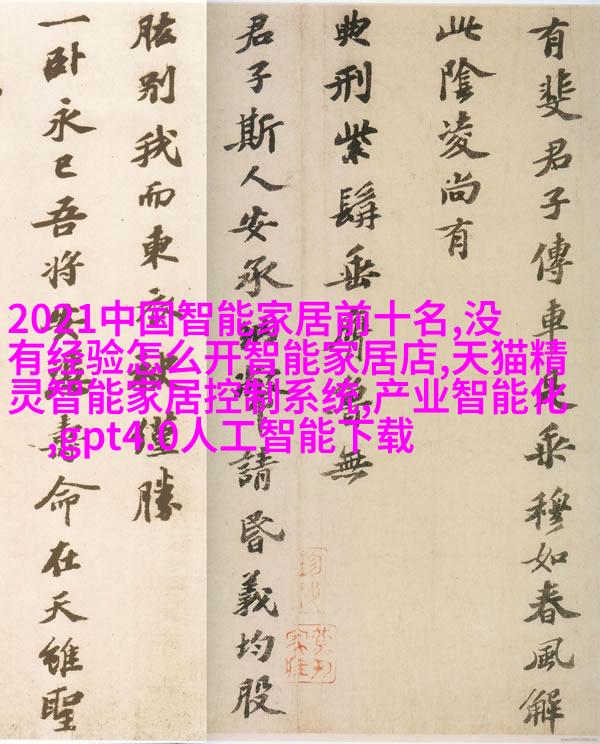 2021中国智能家居前十名,没
有经验怎么开智能家居店,天猫精
灵智能家居控制系统,产业智能化
,gpt4.0人工智能下载
有斐君子傳車是乘穆如春風解
此陰凌尚有
典刑紫髯垂膺魯無
君子斯人安承納幣請昏義均股
肱別我而東衣袂僅勝
一臥永已吾將安憑壽命在天雖聖